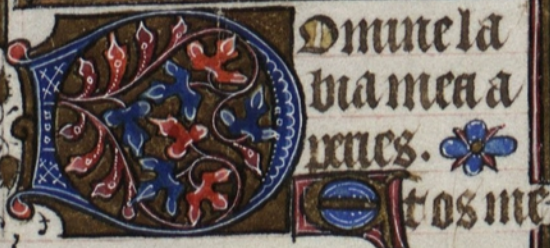 DOmine la
bia mea a
peries.
Et os me